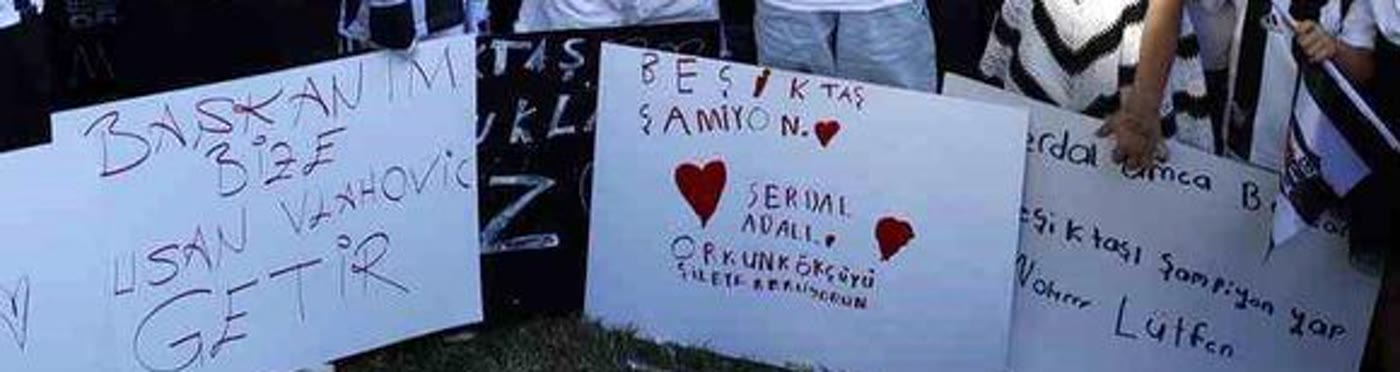 BAŞKANIM
BİZE
USAN VLAHOVİC
GETİR
KTAŞ
UKL
Z
BEŞİKTAŞ
ŞAMİYON.
SERDAL
ADALI.
ORKUN KÖKÇÜYÜ
erdal amca B
eşiktaşı Şampiyon yap
Nolur Lütfen